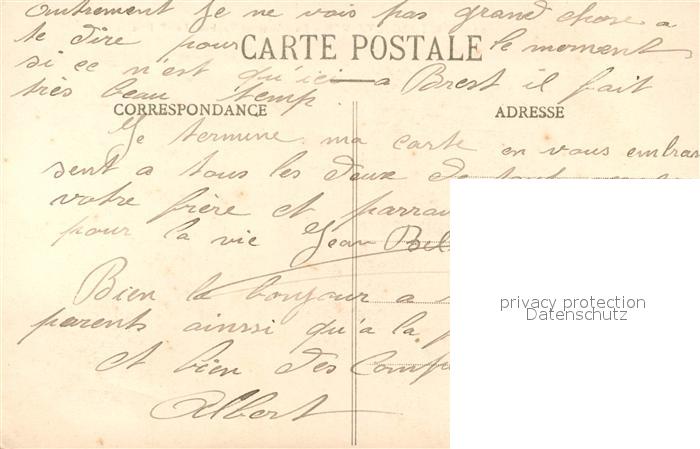 autrement je ne vois pas grand chose a
te dire pour le moment
CARTE POSTALE
si ce n'est qu'ici a Brest il fait
très beau temp.
CORRESPONDANCE
ADRESSE
Je termine ma carte en vous embras
sent a tous les deux de tout
votre frère et parrai
pour la vie Jean Bel
Bien le bonjour a
parents ainssi qu'a la
et bien des Comp
Albert
privacy protection
Datenschutz